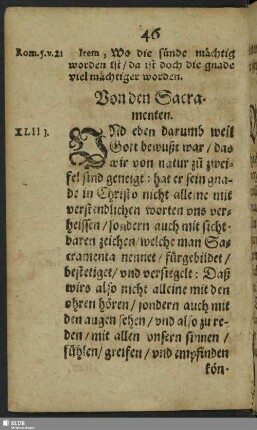 46
Rom.5.v.21 Item, Wo die sünde mächtig
worden ist/da ist doch die gnade
viel mächtiger worden.
Von den Sacra-
menten.
XLIII. UNd eben darumb weil
Gott bewußt war/das
wir von natur zů zwei-
fel sind geneigt: hat er sein gna-
de in Christo nicht alleine mit
verstendlichen worten vns ver-
heissen/sondern auch mit sicht-
baren zeichen/welche man Sa-
cramenta nennet/fürgebildet/
bestetiget/vnd versiegelt: Daß
wirs also nicht alleine mit den
ohren hören/sondern auch mit
den augen sehen/vnd also zu re-
den/mit allen vnsern sinnen/
fühlen/greifen/vnd empfinden
kön-
SLUB